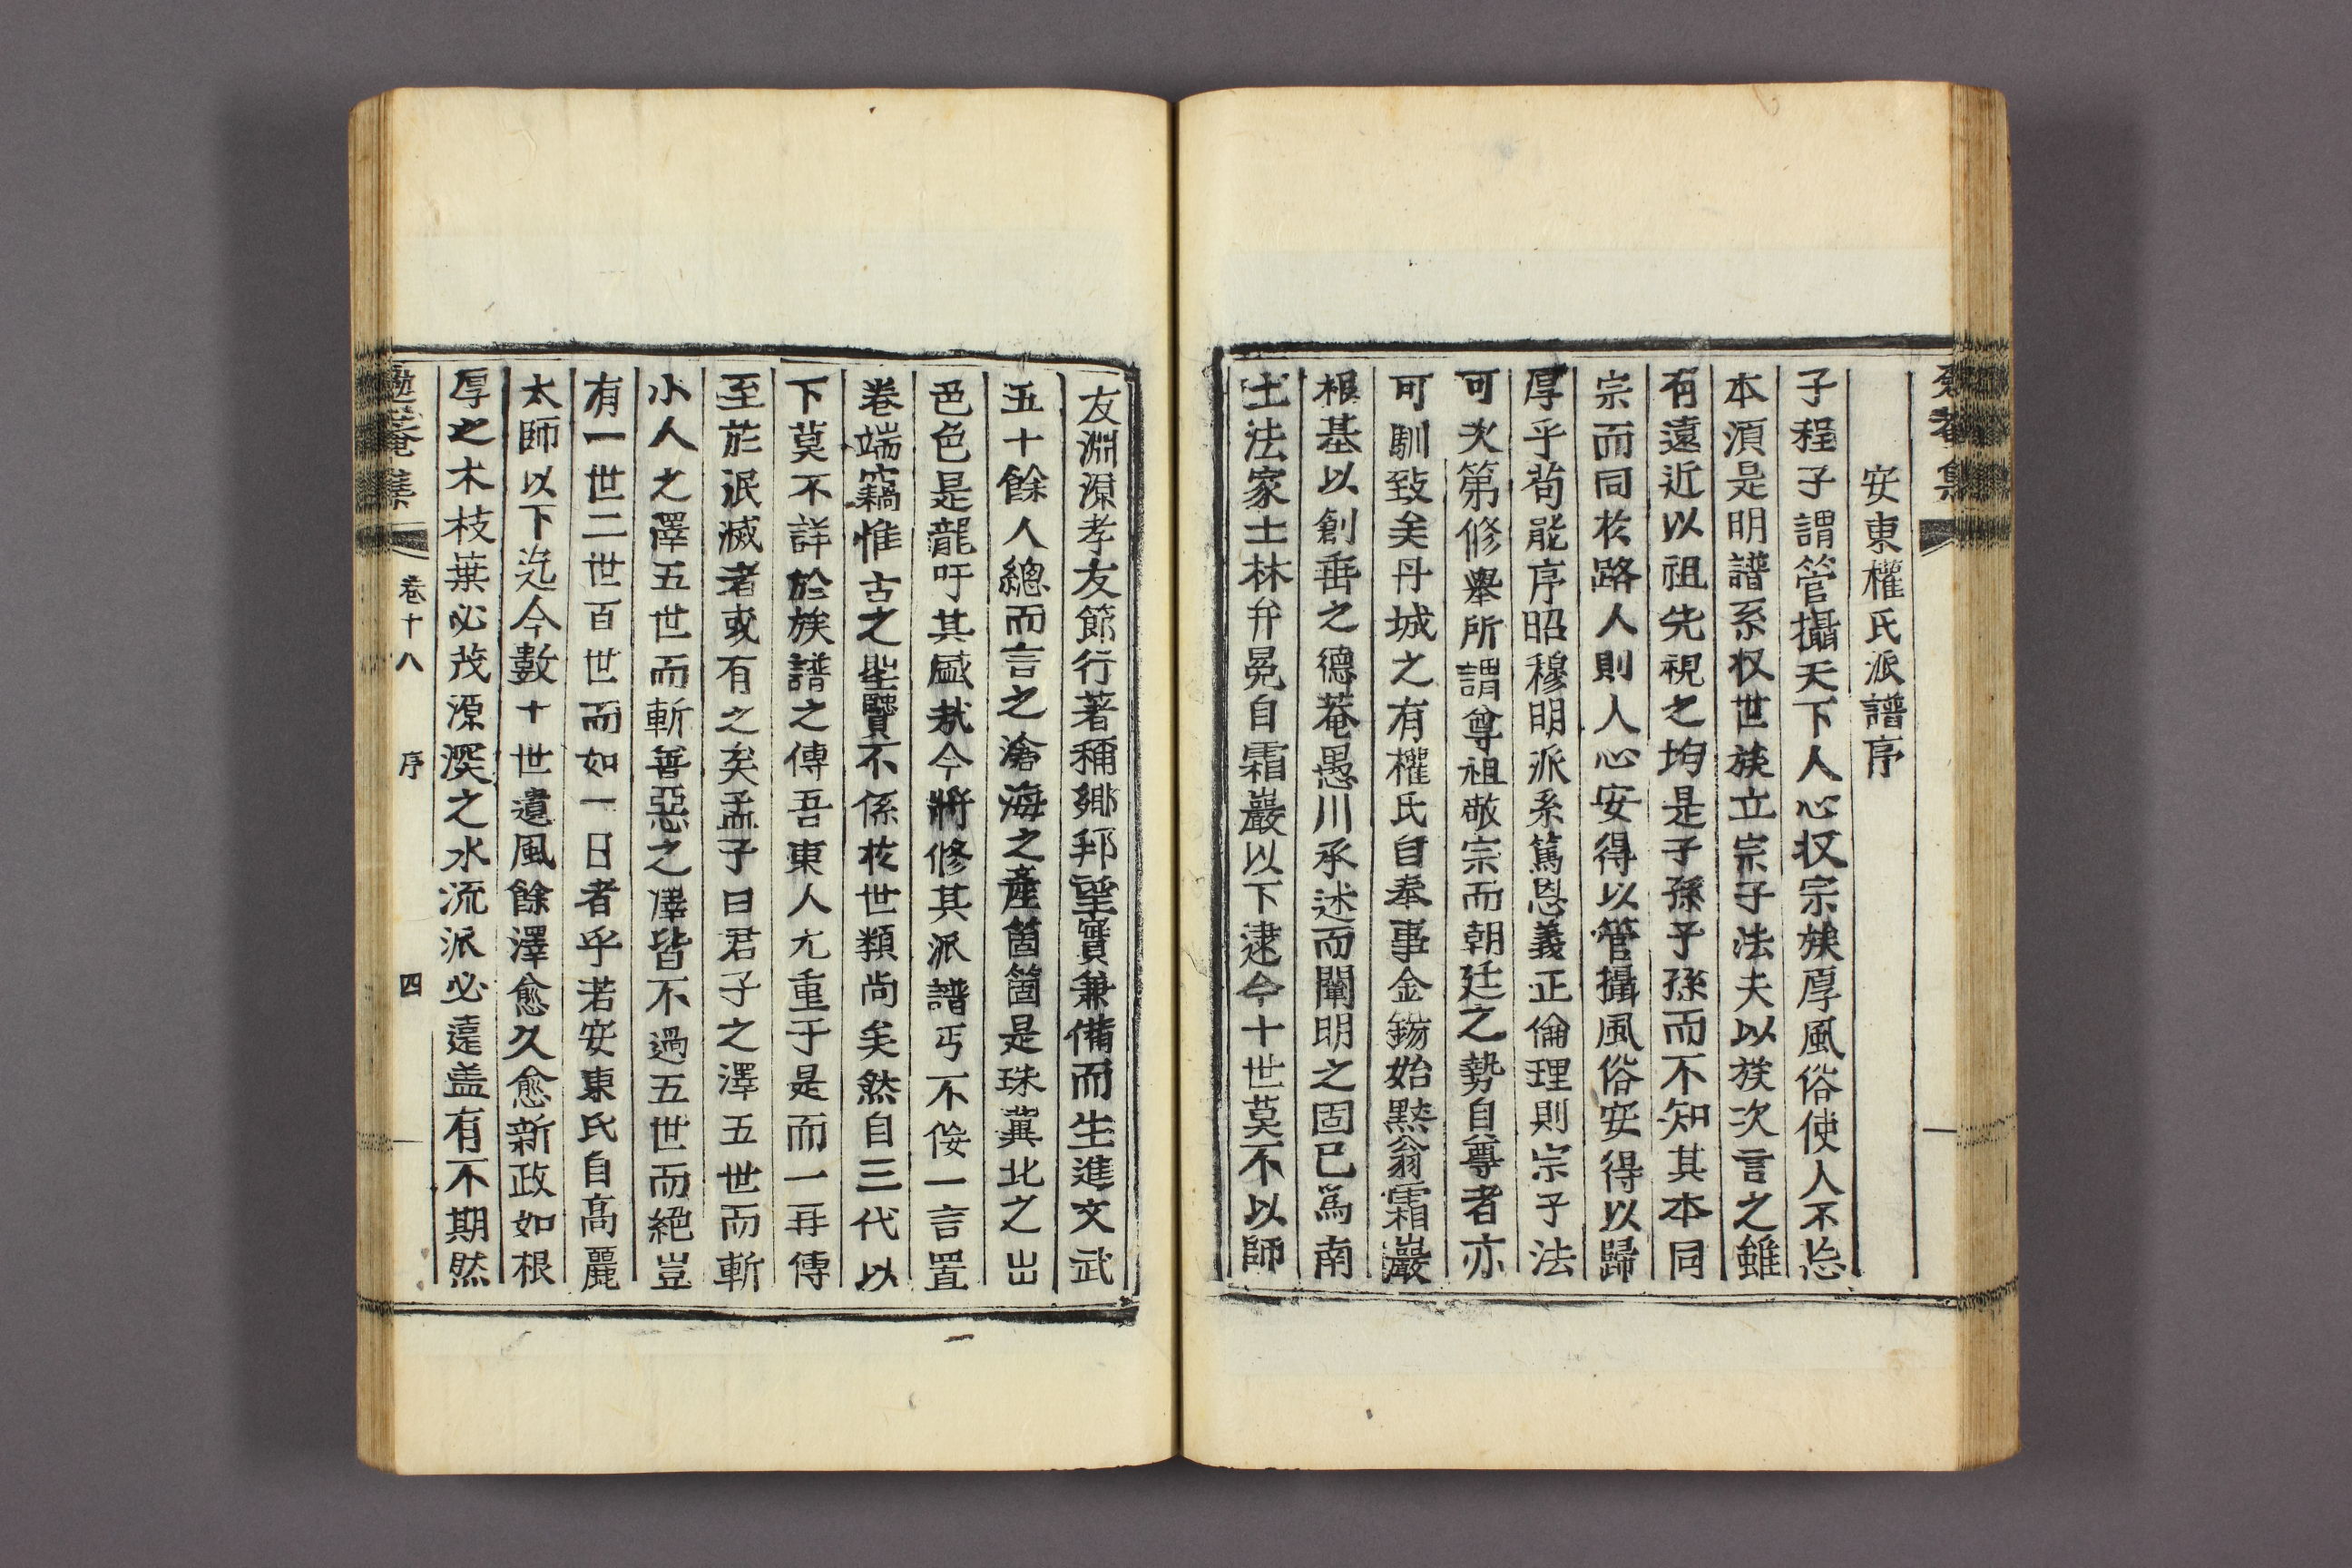 安東權氏派譜序
子程子謂管攝天下人心収宗族厚風俗使人不忘
本湏是明譜系収世族立宗子法夫以族次言之雖
有遠近以祖先視之均是子孫子孫而不知其本同
宗而同於路人則人心安得以管攝風俗安得以歸
厚乎苟能序昭穆明派系篤恩義正倫理則宗子法
可次第修舉所謂尊祖敬宗而朝廷之勢自尊者亦
可馴致矣丹城之有權氏自奉事金錫始黙翁霜巖
根基以創垂之德菴愚川承述而闡明之固已爲南
土法家士林弁冕自霜巖以下逮今十世莫不以師
友淵源孝友節行著稱鄉邦望實兼備而生進文武
五十餘人總而言之滄海之產箇箇是珠冀北之出
色色是龍吁其盛㦲今將修其派譜丐不侫一言置
卷端竊惟古之聖贒不係於世類尚矣然自三代以
下莫不詳於族譜之傳吾東人尤重于是而一再傳
至於泯滅者或有之矣孟子曰君子之澤五世而斬
小人之澤五世而斬善惡之澤皆不過五世而絕豈
有一世二世百世而如一日者乎若安東氏自高麗
太師以下迄今數十世遺風餘澤愈久愈新政如根
厚之木枝葉必茂源深之水流派必遠盖有不期然
勉菴集 卷十八 序 四